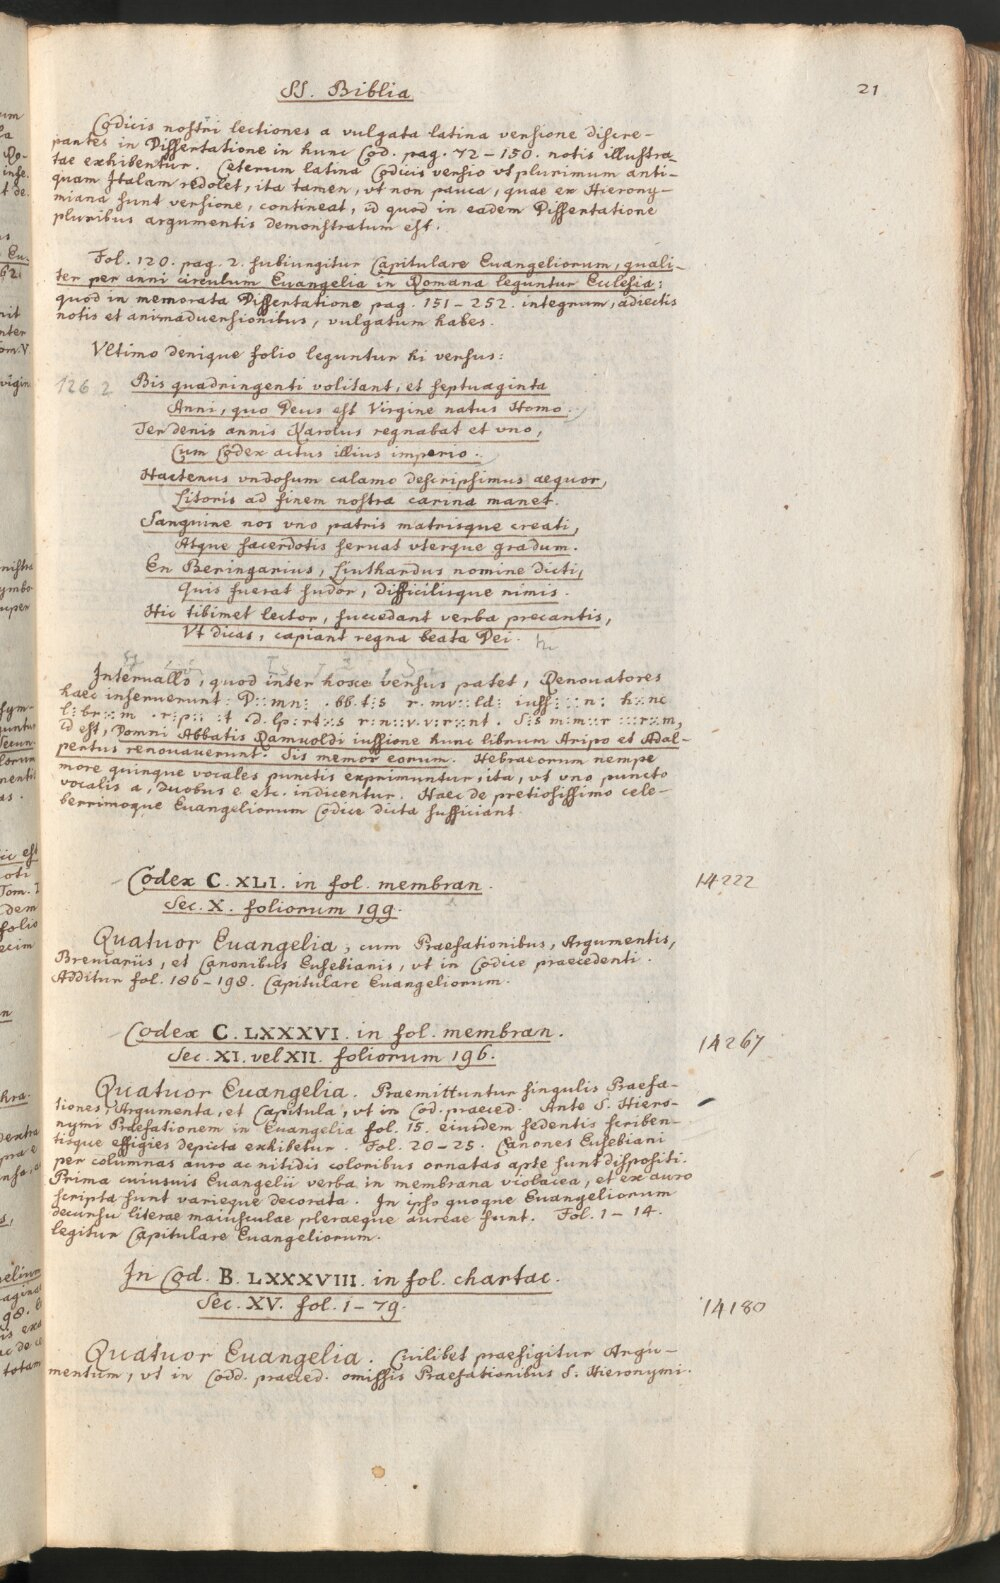 SS. Biblia
21
Codicis nostri lectiones a vulgata latina versione discre-
pantes in Dissertatione in hunc Cod. pag. 72 – 150. notis illustra-
tae exhibentur. Ceterum latina Codicis versio vt plurimum anti-
quam Italam redolet, ita tamen, vt non pauca, quae ex Hierony-
miana sunt versione, contineat, id quod in eadem Dissertatione
pluribus argumentis demonstratum est.
Fol. 120. pag. 2. subiungitur Capitulare Euangeliorum, quali-
ter per anni circulum Euangelia in Romana leguntur Eclesia:
quod in memorata Dissertatione pag. 151 – 252. integrum, adiectis
notis et animaduersionibus, vulgatum habes.
Vltimo denique folio leguntur hi versus:
126 2 Bis quadringenti volitant, et septuaginta
Anni, quo Deus est Virgine natus Homo.
Ter denis annis Karolus regnabat et vno,
Cum Codex actus illius imperio.
Hactenus vndosum calamo descripsimus aequor,
Litoris ad finem nostra carina manet.
Sanguine nos vno patris matrisque creati,
Atque sacerdotis seruat vterque gradum.
En Beringarius, Liuthardus nomine dicti,
Quis fuerat sudor, difficilisque nimis.
Hic tibimet lector, succedant verba precantis,
Vt dicas, capiant regna beata Dei.
Interuallo, quod inter hosce versus patet, Renouatores
haec inseruerunt: D::mn: . bb.t:s r.mv::ld: iuss: ::n: h::nc
l:br::m .r:p:: :t .d.lp:rt::s r:n::v.v:r::nt. S:s m:m::r :::r::m,
id est, Domni Abbatis Ramuoldi iussione hunc librum Aripo et Adal-
pertus renouauerunt. Sis memor eorum. Hebraeorum nempe
more quinque vocales punctis exprimuntur, ita, vt vno puncto
vocalis a, duobus e etc. indicentur. Haec de pretiosissimo cele-
berrimoque Euangeliorum Codice dicta sufficiant.
Codex C. XLI. in fol. membran.
14222
Sec. X. foliorum 199.
Quatuor Euangelia, cum Praefationibus, Argumentis,
Breuiariis, et Canonibus Eusebianis, vt in Codice praecedenti.
Additur fol. 186–198. Capitulare Euangeliorum.
Codex C. LXXXVI. in fol. membran.
14267
Sec. XI. vel XII. foliorum 196.
Quatuor Euangelia. Praemittuntur singulis Praefa-
tiones, Argumenta, et Capitula, vt in Cod. praeced. Ante S. Hiero-
nymi Praefationem in Euangelia fol. 15. eiusdem sedentis scriben-
tisque effigies depicta exhibetur. Fol. 20–25. Canones Eusebiani
per columnas auro ac nitidis coloribus ornatas apte sunt dispositi.
Prima cuiusuis Euangelii verba in membrana violacea, et ex auro
scripta sunt varieque decorata. In ipso quoque Euangeliorum
decursu literae maiusculae pleraeque aureae sunt. Fol. 1–14.
legitur Capitulare Euangeliorum.
In Cod. B. LXXXVIII. in fol. chartac.
Sec. XV. fol. 1–79.
14180
Quatuor Euangelia. Cuilibet praefigitur Argu-
mentum, vt in Codd. praeced. omissis Praefationibus S. Hieronymi.